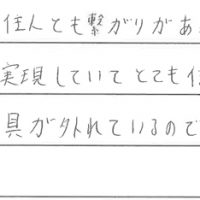 住人とも繋がりがあ
実現していてとても
具が外れているので